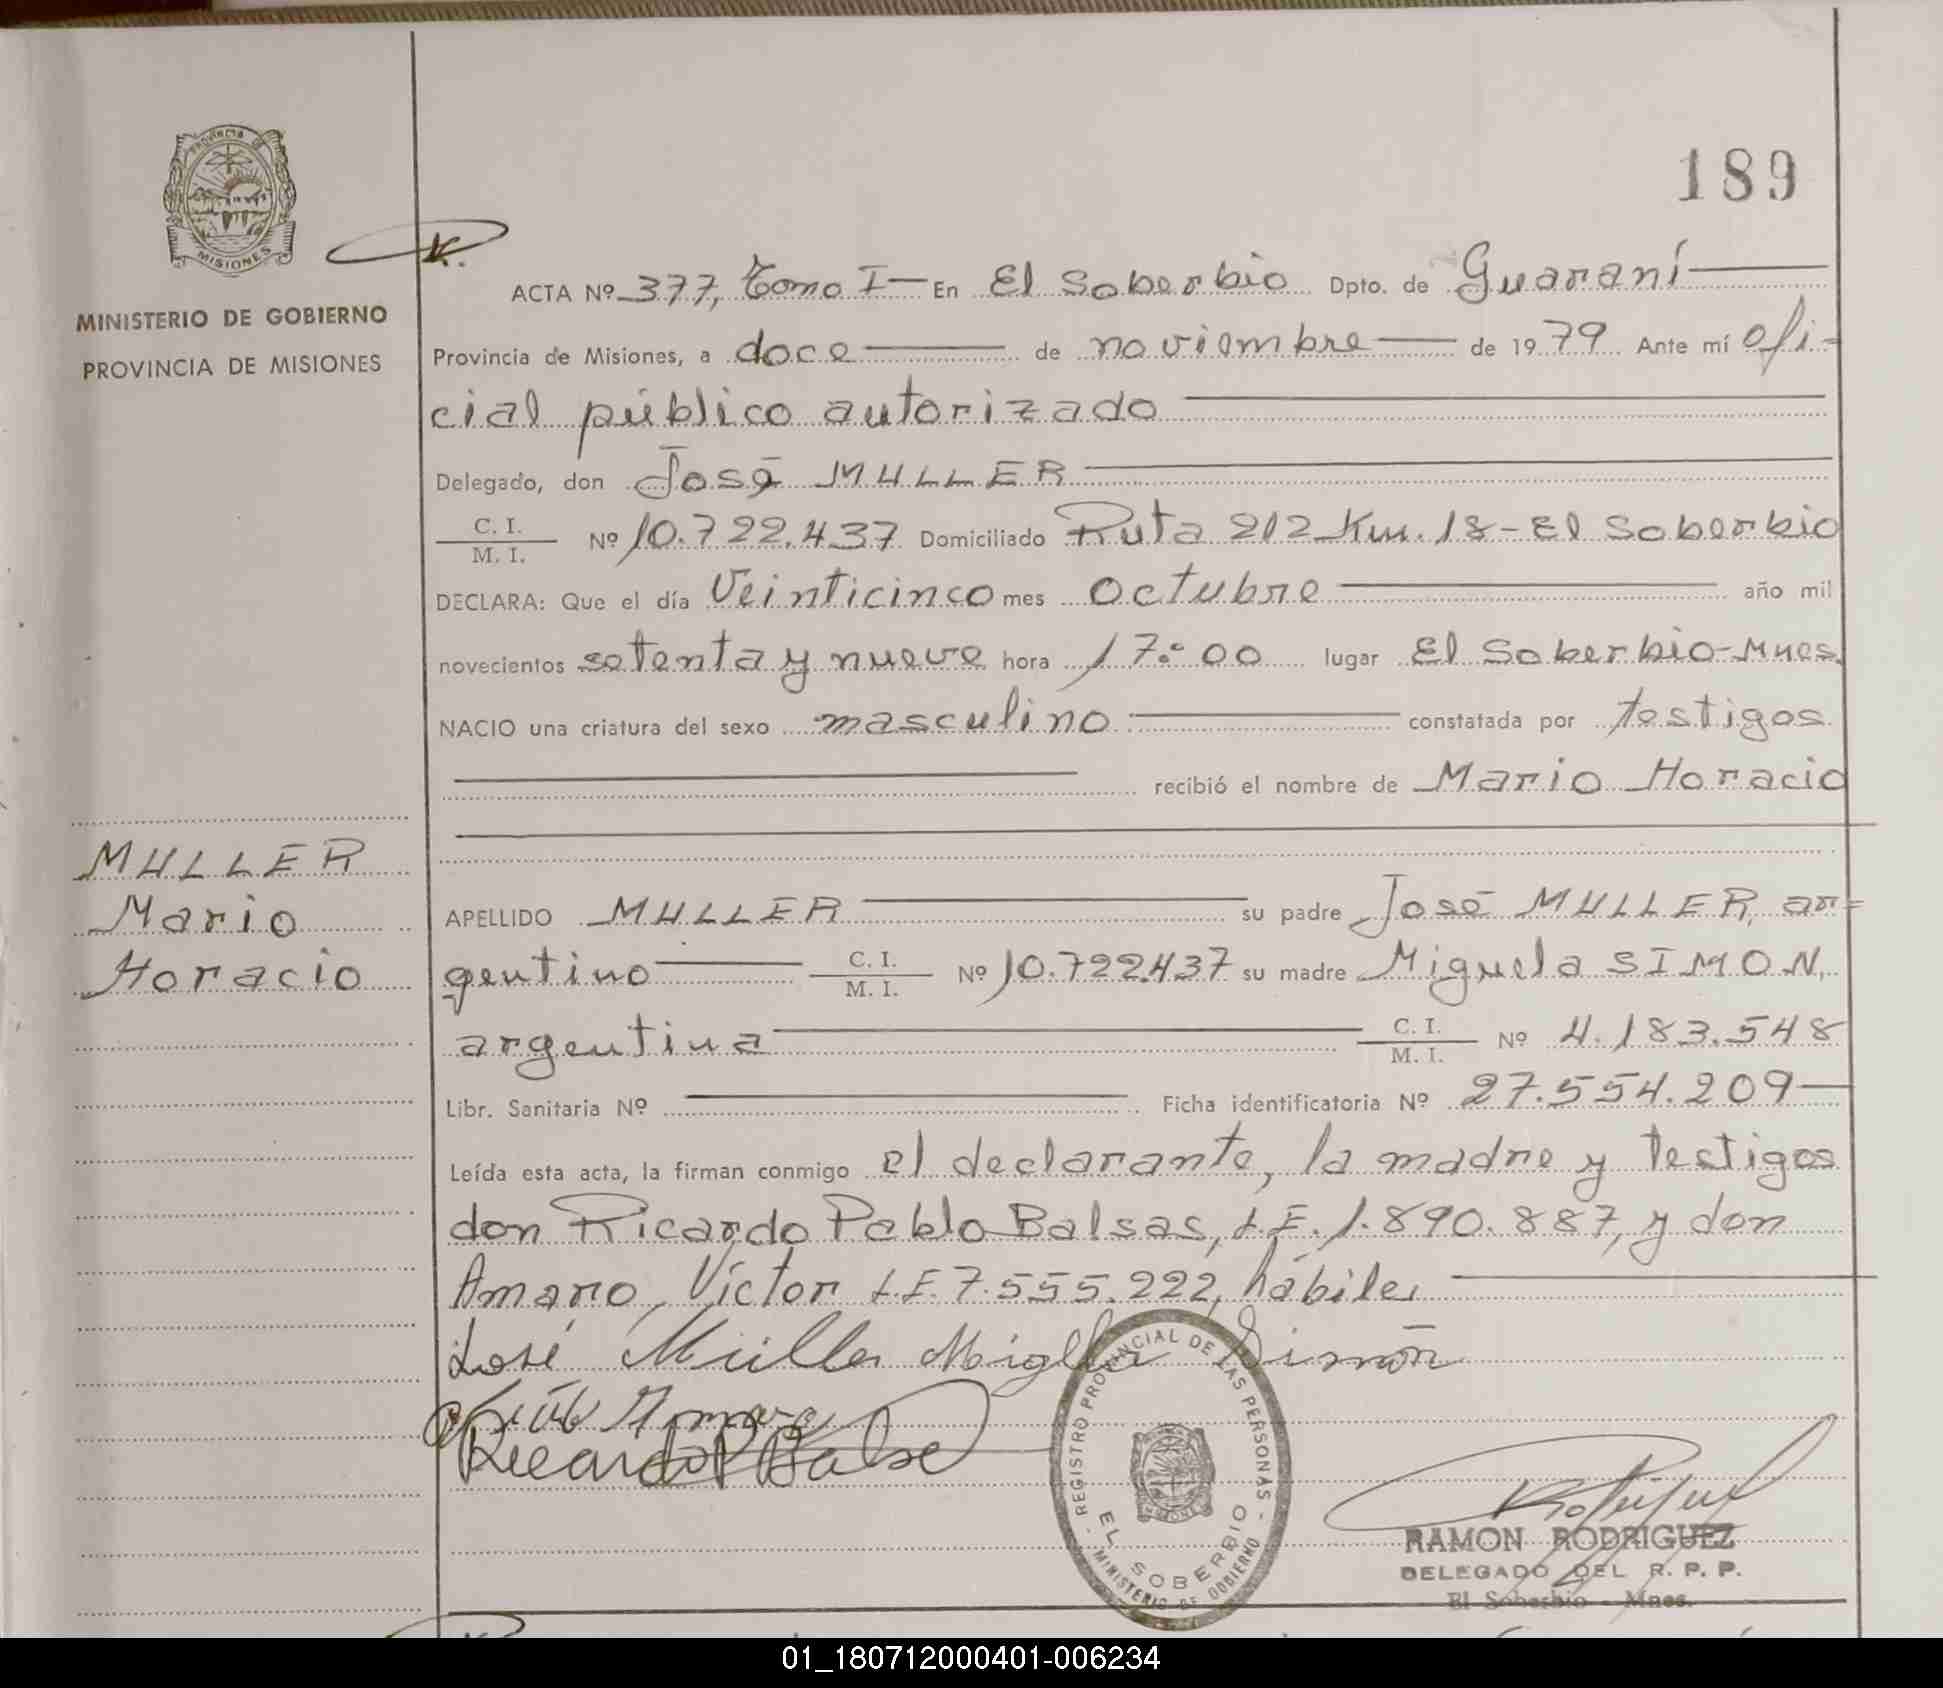 PROVINCIA DE
MISIONES
MINISTERIO DE GOBIERNO
PROVINCIA DE MISIONES
MULLER
Mario
Horacio
189
ACTA Nº 377, Tomo I- En El Soberbio Dpto. de Guaraní
Provincia de Misiones, a doce de noviembre de 1979. Ante mí ofi-
cial público autorizado
Delegado, don José MULLER
C. I.
M. I. Nº 10.722.437 Domiciliado Ruta 212 Km. 18-El Soberbio
DECLARA: Que el día Veinticinco mes octubre año mil
novecientos setenta y nueve hora 17:00 lugar El Soberbio-Mnes.
NACIO una criatura del sexo masculino constatada por testigos
recibió el nombre de Mario Horacio
APELLIDO MULLER su padre José MULLER, ar-
gentino C. I. M. I. Nº 10.722.437 su madre Miguela SIMON,
argentina C. I. M. I. Nº 4.183.548
Libr. Sanitaria Nº Ficha identificatoria Nº 27.554.209
Leída esta acta, la firman conmigo el declarante, la madre y testigos
don Ricardo Pablo Balsas, L.E. 1.890.887, y don
Amaro, Víctor L.E. 7.555.222, hábiles
José Müller Simón
Ricardo P Balse
REGISTRO PROVINCIAL DE LAS PERSONAS
EL SOBERBIO
MINISTERIO DE GOBIERNO
RAMON RODRIGUEZ
DELEGADO DEL R. P. P.
El Soberbio - Mnes.
01_180712000401-006234